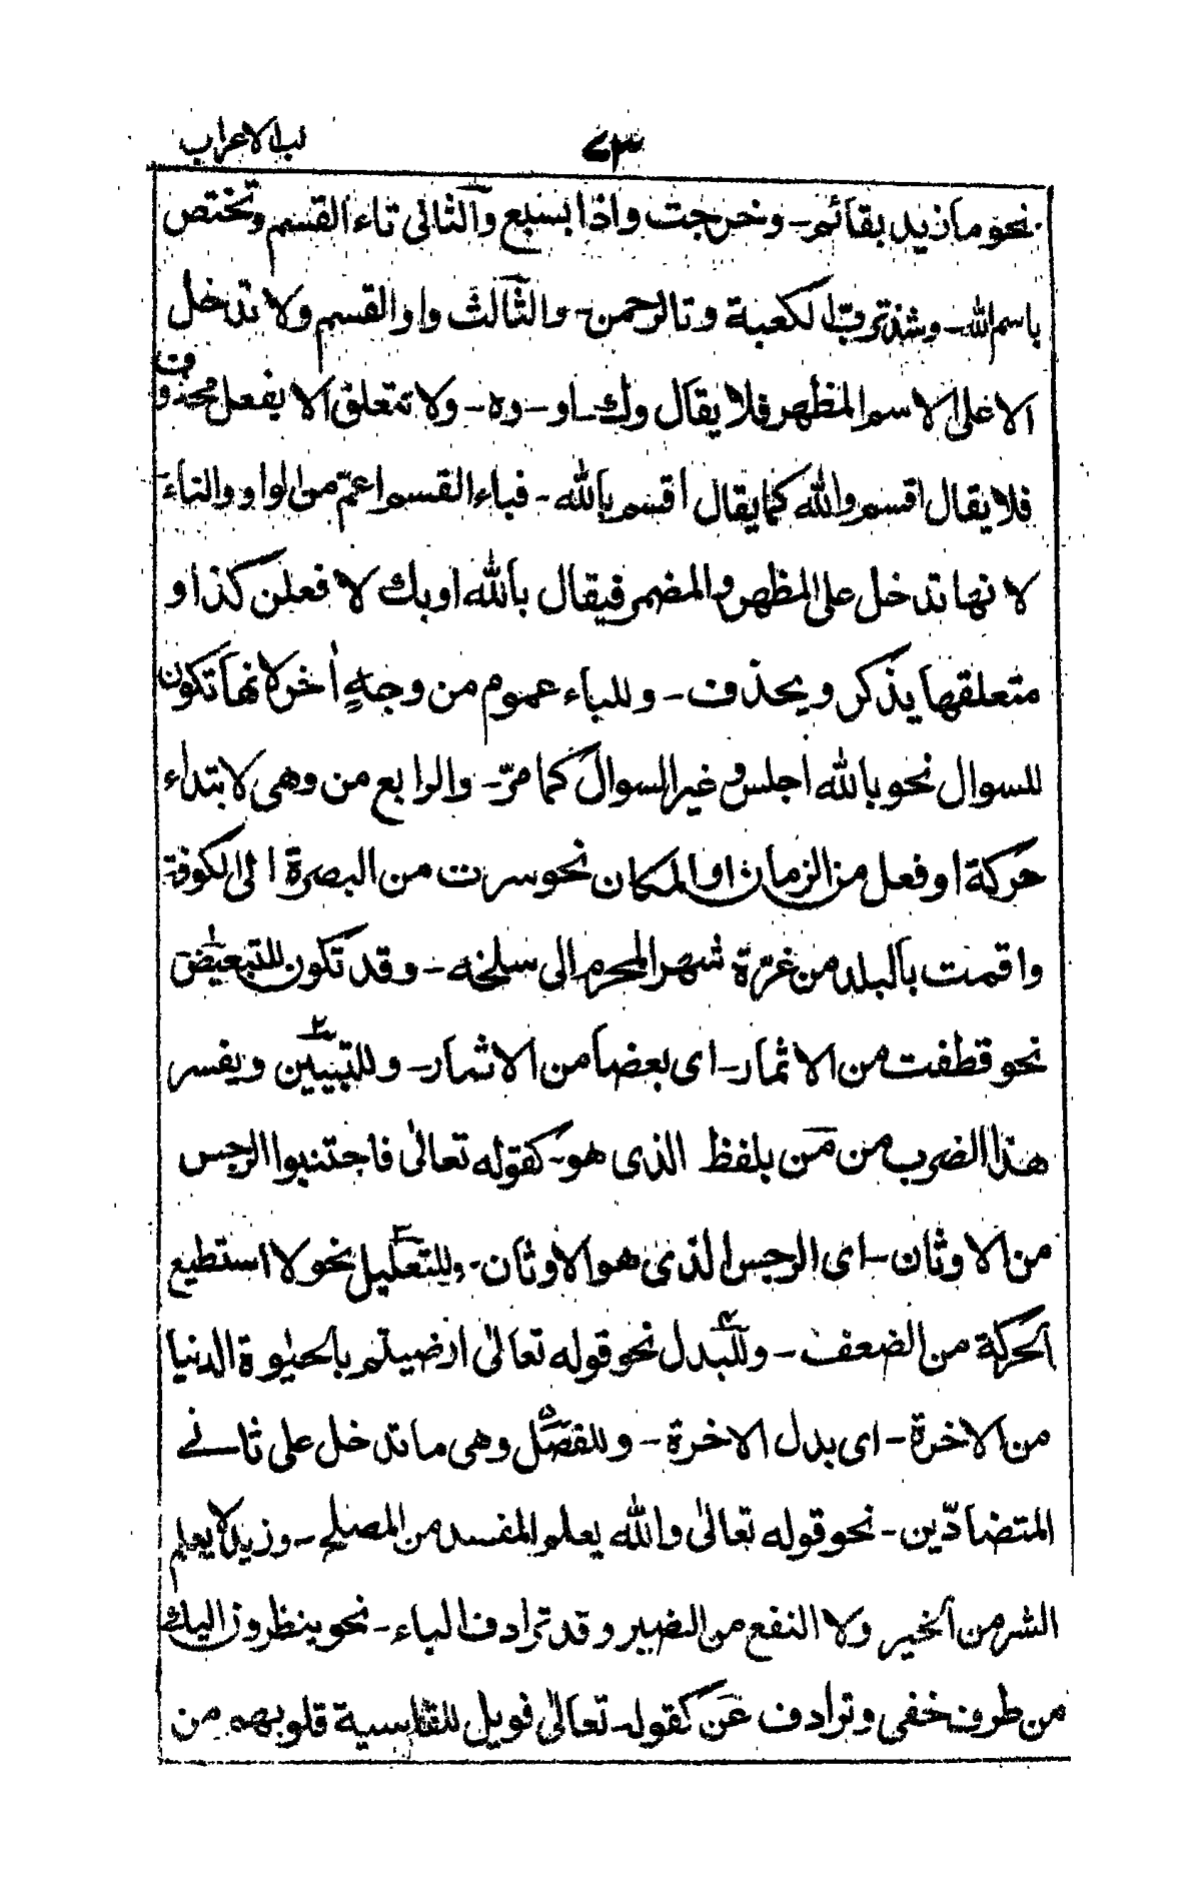 لب الاعراب
٧٣
نحو ما زيد بقائم۔ وخرجت واذا بسبع والثانی تاء القسم وتختص
باسم الله۔ وشذ تربّ الكعبة وتالرحمن۔ والثالث واو القسم ولا تدخل
الا علی الاسم المظهر فلا يقال وك۔ او۔ وه۔ ولا تتعلق الا بفعل محذوف
فلا يقال اقسم والله كما يقال اقسم بالله۔ فباء القسم اعمّ من الواو والتاء
لانها تدخل علی المظهر والمضمر فيقال بالله او بك لافعلن كذا و
متعلقها يذكر ويحذف۔ وللباء عموم من وجهٍ اخر لانها تكون
للسوال نحو بالله اجلس وغير السوال كما مرّ۔ والرابع من وهی لابتداء
حركة او فعل من الزمان او المكان نحو سرت من البصرة الی الكوفة
واقمت بالبلد من غرّة شهر المحرم الی سلخه۔ وقد تكون للتبعيض
نحو قطفت من الاثمار۔ ای بعضا من الاثمار۔ وللتبيين ويفسر
هذا الضرب من مَن بلفظ الذی هو۔ كقوله تعالیٰ فاجتنبوا الرجس
من الاوثان۔ ای الرجس الذی هو الاوثان۔ وللتعليل نحو لا استطيع
الحركة من الضعف۔ وللبدل نحو قوله تعالیٰ ارضيتم بالحيٰوة الدنيا
من الاخرة۔ ای بدل الاخرة۔ وللفصل وهی ما تدخل علی ثانے
المتضادّين۔ نحو قوله تعالیٰ والله يعلم المفسد من المصلح۔ وزيد لا يعلم
الشر من الخير ولا النفع من الضير وقد ترادف الباء۔ نحو ينظرون اليك
من طرف خفی وترادف عَن كقوله۔ تعالیٰ فويل للقاسية قلوبهم من